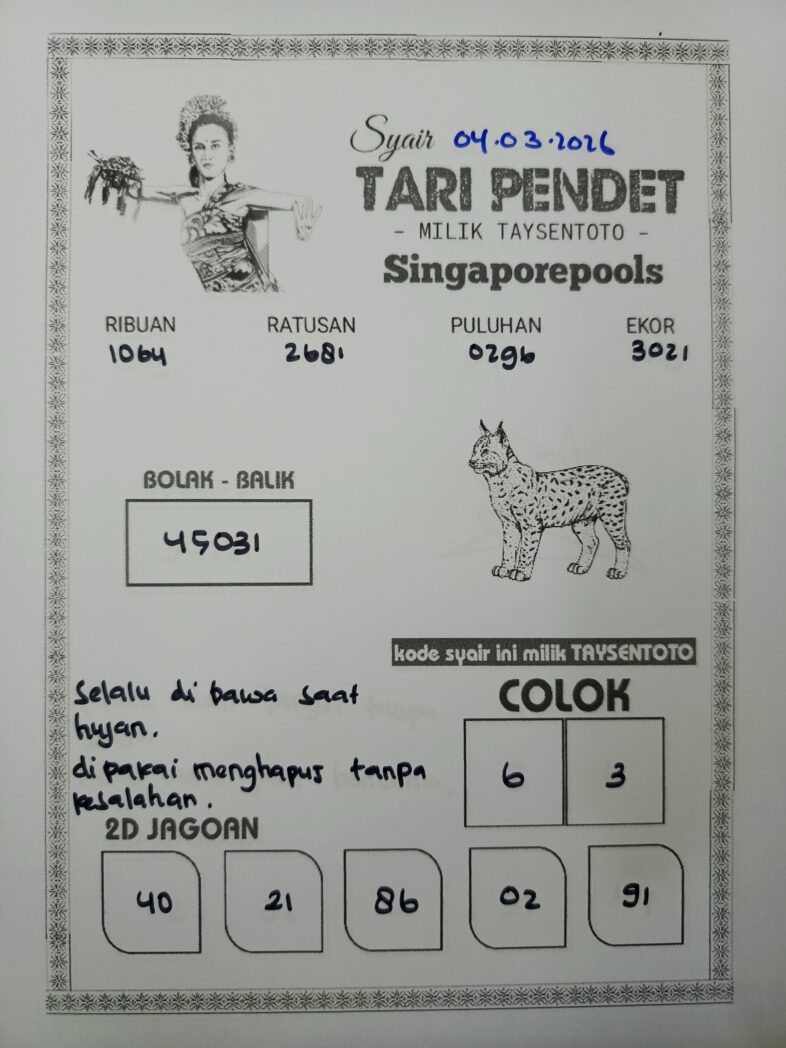 Syair 04.03.2026
TARI PENDET
- MILIK TAYSENTOTO -
Singaporepools
RIBUAN RATUSAN PULUHAN EKOR
1064 2681 0296 3021
BOLAK - BALIK
45031
kode syair ini milik TAYSENTOTO
selalu di bawa saat
hujan.
di pakai menghapus tanpa
kesalahan.
COLOK
6 3
2D JAGOAN
40 21 86 02 91